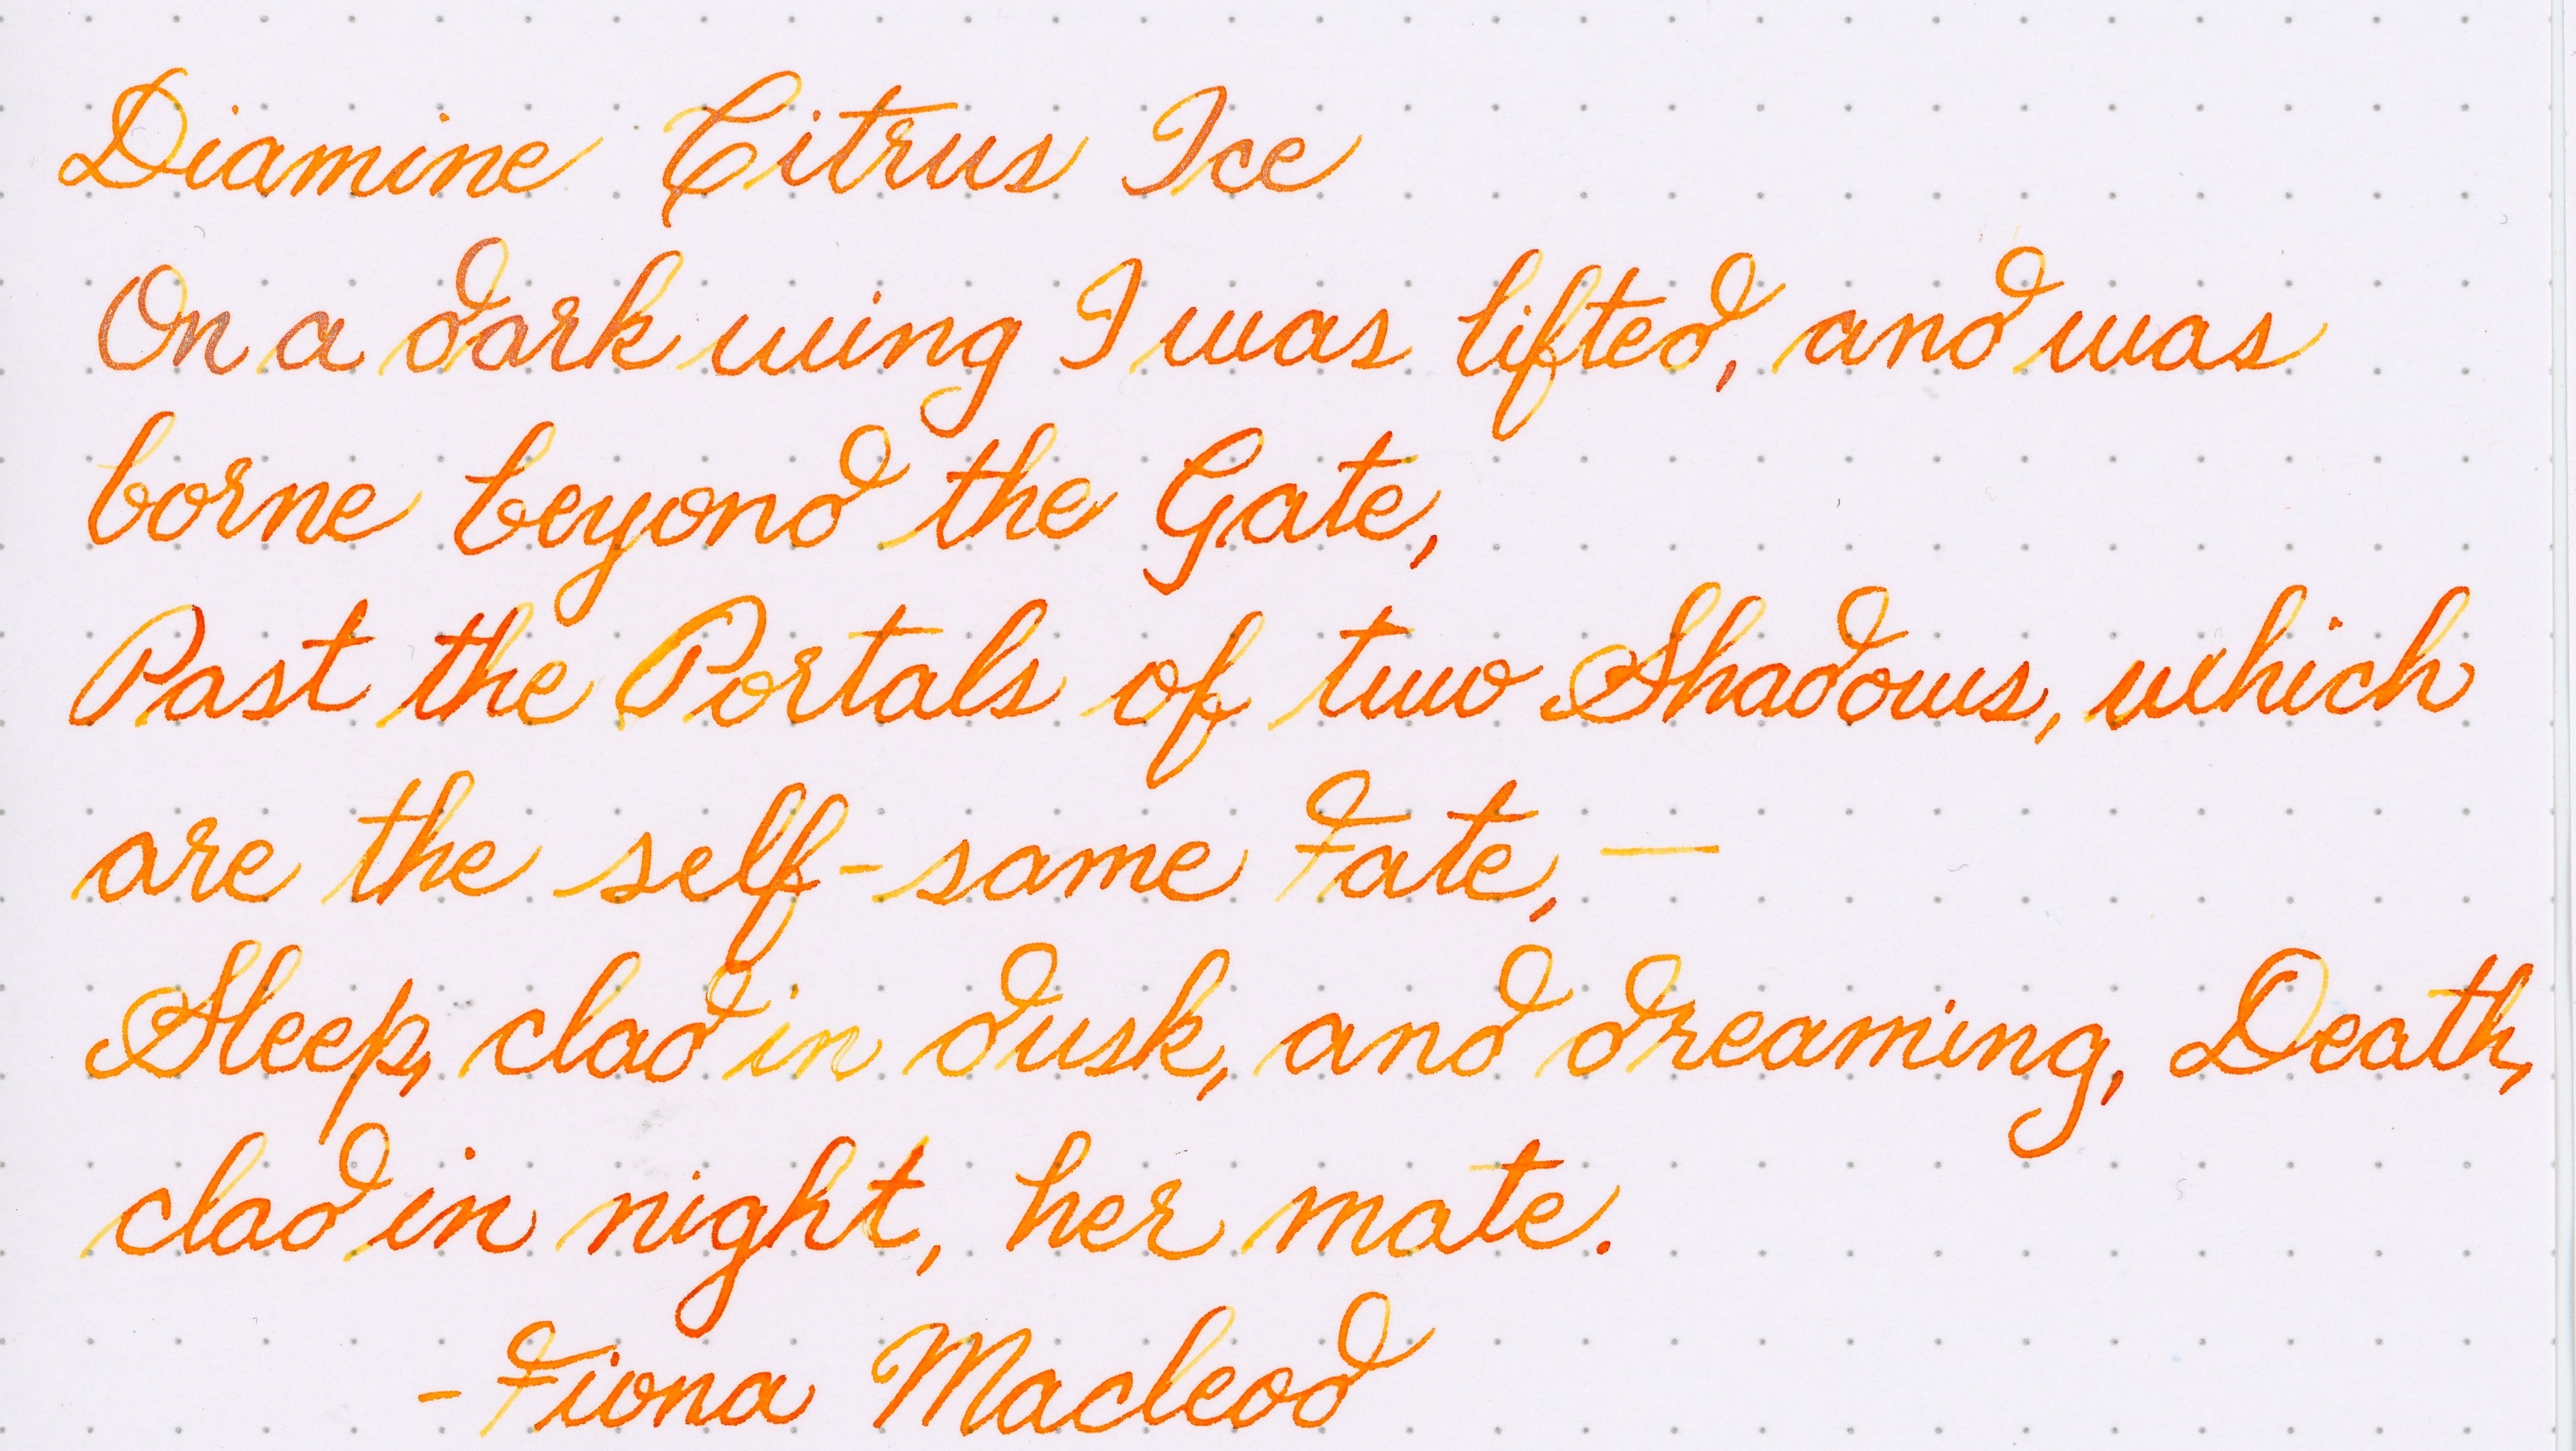 Diamine Citrus Ice
On a dark wing I was lifted, and was
borne beyond the Gate,
Past the Portals of two Shadows, which
are the self-same Fate, —
Sleep, clad in dusk, and dreaming, Death,
clad in night, her mate.
- Fiona Macleod